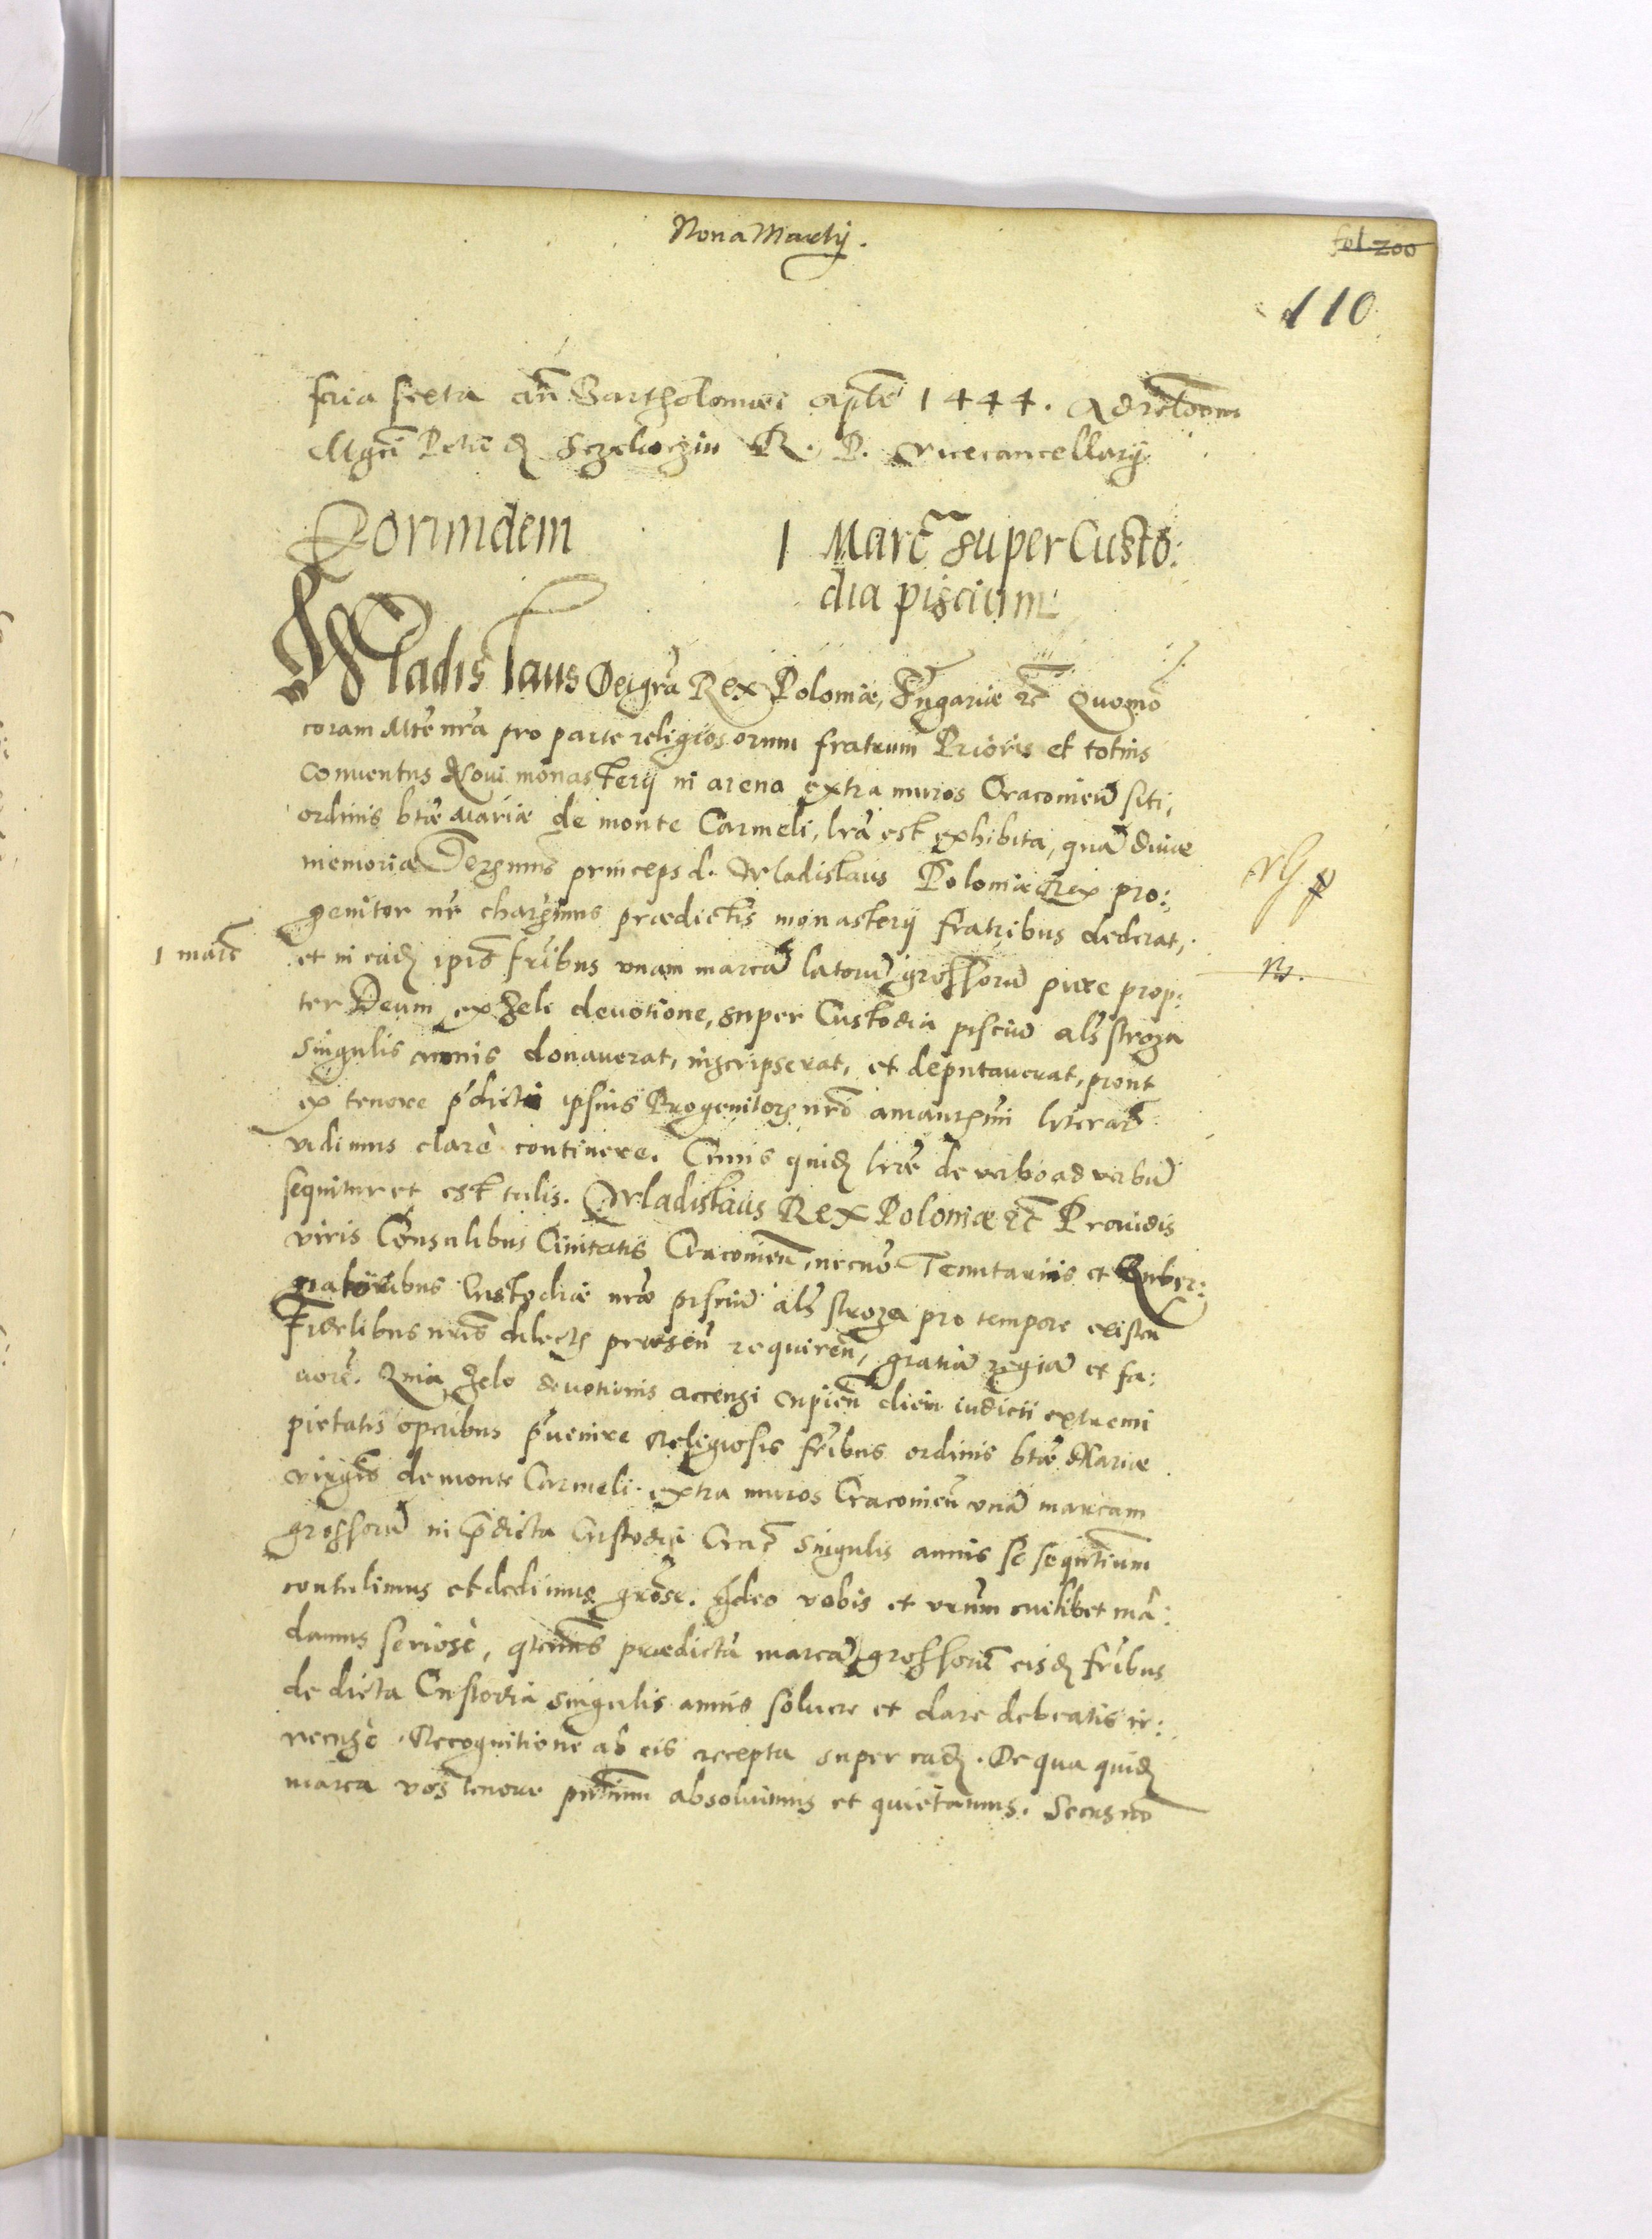 Nona Martij.
fol. 200
110
feria sexta añ Bartholomæi aplĩ 1444. Ad relõem
Mgci Petri de Sczekoczin R. P. Vicecancellarij
Eorundem 1 Marc super Custo:
dia piscium
Wladislaus Dei grã Rex Poloniæ, Vngariæ etc̃ Quomõ
coram Mte nrã pro parte religiosorum fratrum Prioris et totius
Conuentus Noui monasterij in arena extra muros Cracovień siti,
ordinis btæ Mariæ de monte Carmeli, lrã est exhibita, quã diuæ
memoriæ Serenmus princeps d. Wladislaus Poloniæ Rex pro:
genitor nr̃ charissimus prædictis monasterij fratribus dederat,
1 marc
et in eadẽ ipis fribus vnam marcã latorũ grossorũ pure prop:
ter Deum ex zeli deuotione, super Custodia pisciũ als stroza
singulis annis donauerat, inscripserat, et deputauerat, prout
ex tenore pdicti ipsius Progenitoris nrĩ amantissimi literarũ
vidimus clarè continere. Cuius quidẽ lræ de verbo ad verbũ
sequitur et est talis. Wladislaus Rex Poloniæ etc̃ Prouidis
viris Consulibus Ciuitatis Cracovień, necnõ Tenutariis et Guber:
natoribus Custodiæ nræ pisciũ als stroza pro tempore existeñ
Fidelibus nris dilectis præseñ requireñ, gratiã regiã et fa:
uorẽ. Quia zelo deuotionis accensi cupieñ diem iudicii extremi
pietatis operibus pruenire Religiosis fribus ordinis btæ Mariæ
virginis de monte Carmeli extra muros Cracovień vnã marcam
grossorũ in prdicta Custodia Crac̃ singulis annis se sequentium
contulimus et dedimus grose. Ideo vobis et vrum cuilibet mã:
damus seriosè, qtenus prædictã marcã grossorũ eisdẽ fribus
de dicta Custodia singulis annis soluere et dare debeatis ir:
recusè. Recognitione ab eis recepta super eadẽ. De qua quidẽ
marca vos tenore pntium absoluimus et quietamus. Secus nõ